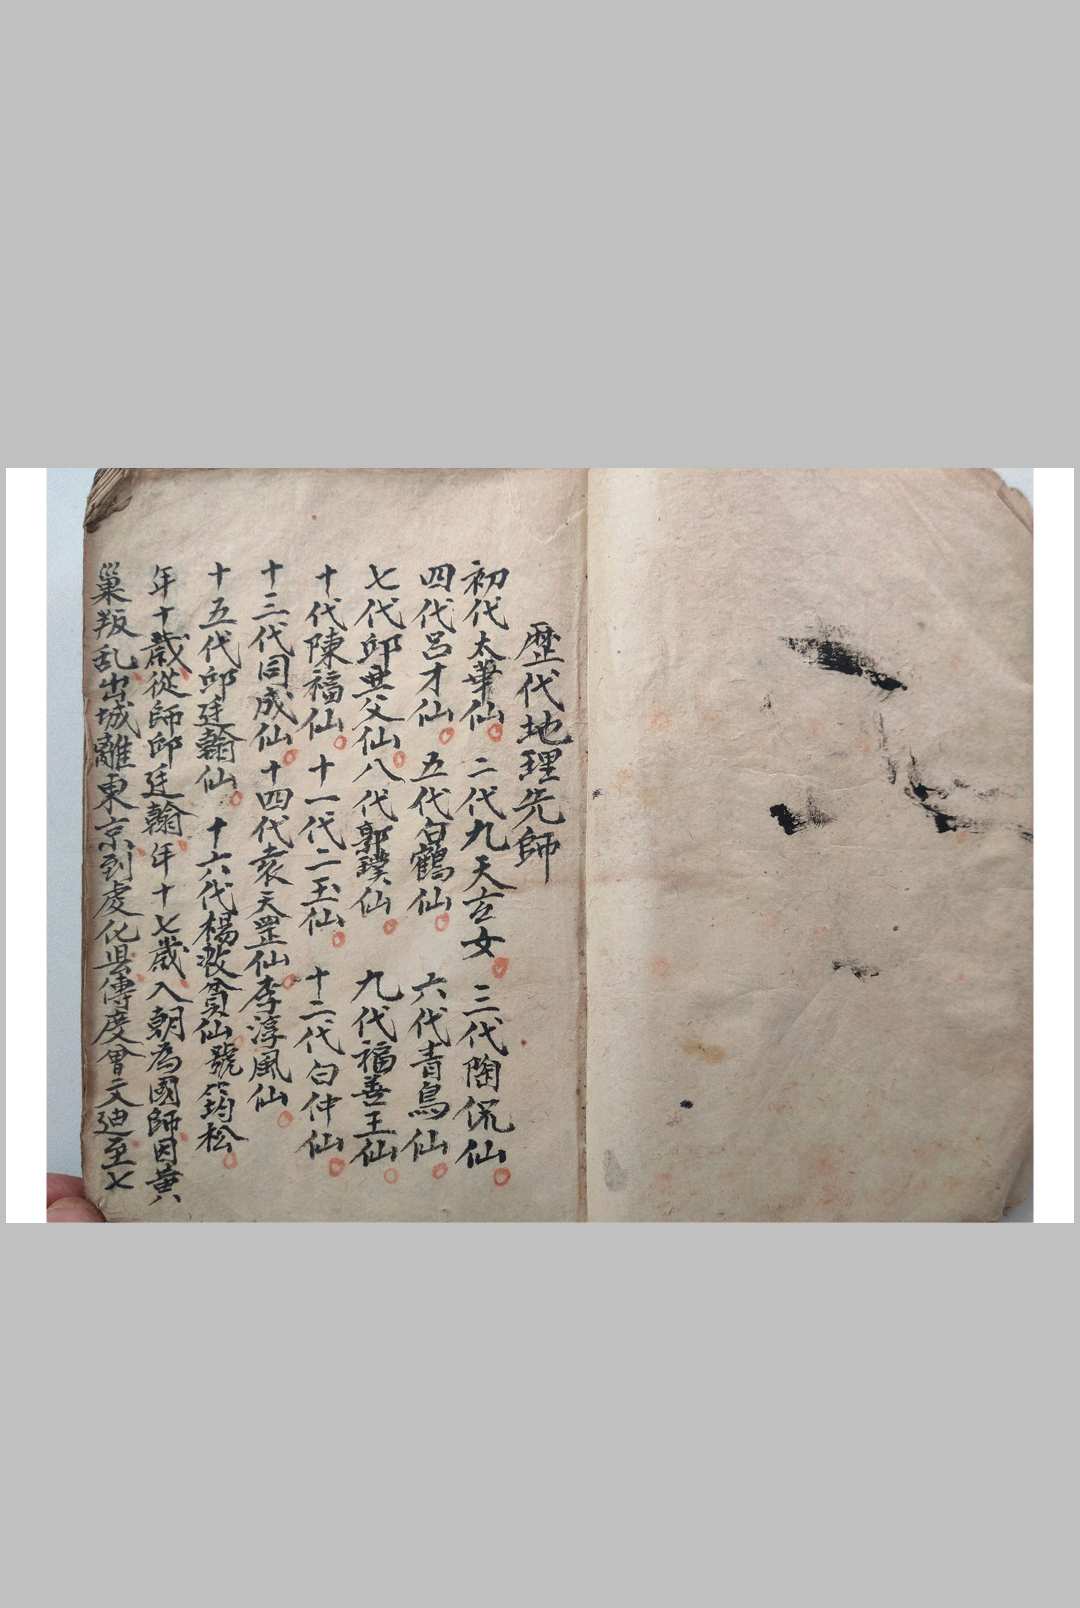 歷代地理先師
初代太華仙 二代九天玄女 三代陶侃仙
四代呂才仙 五代白鶴仙 六代青鳥仙
七代邱典父仙八代郭璞仙 九代福善王仙
十代陳福仙 十一代二玉仙 十二代白仲仙
十三代同成仙 十四代袁天罡仙李淳風仙
十五代邱廷翰仙 十六代楊救貧仙號筠松
年十歲從師邱廷翰年十七歲入朝為國師因黄
巢叛乱出城離東京到虔化县傳度曾文迪至七